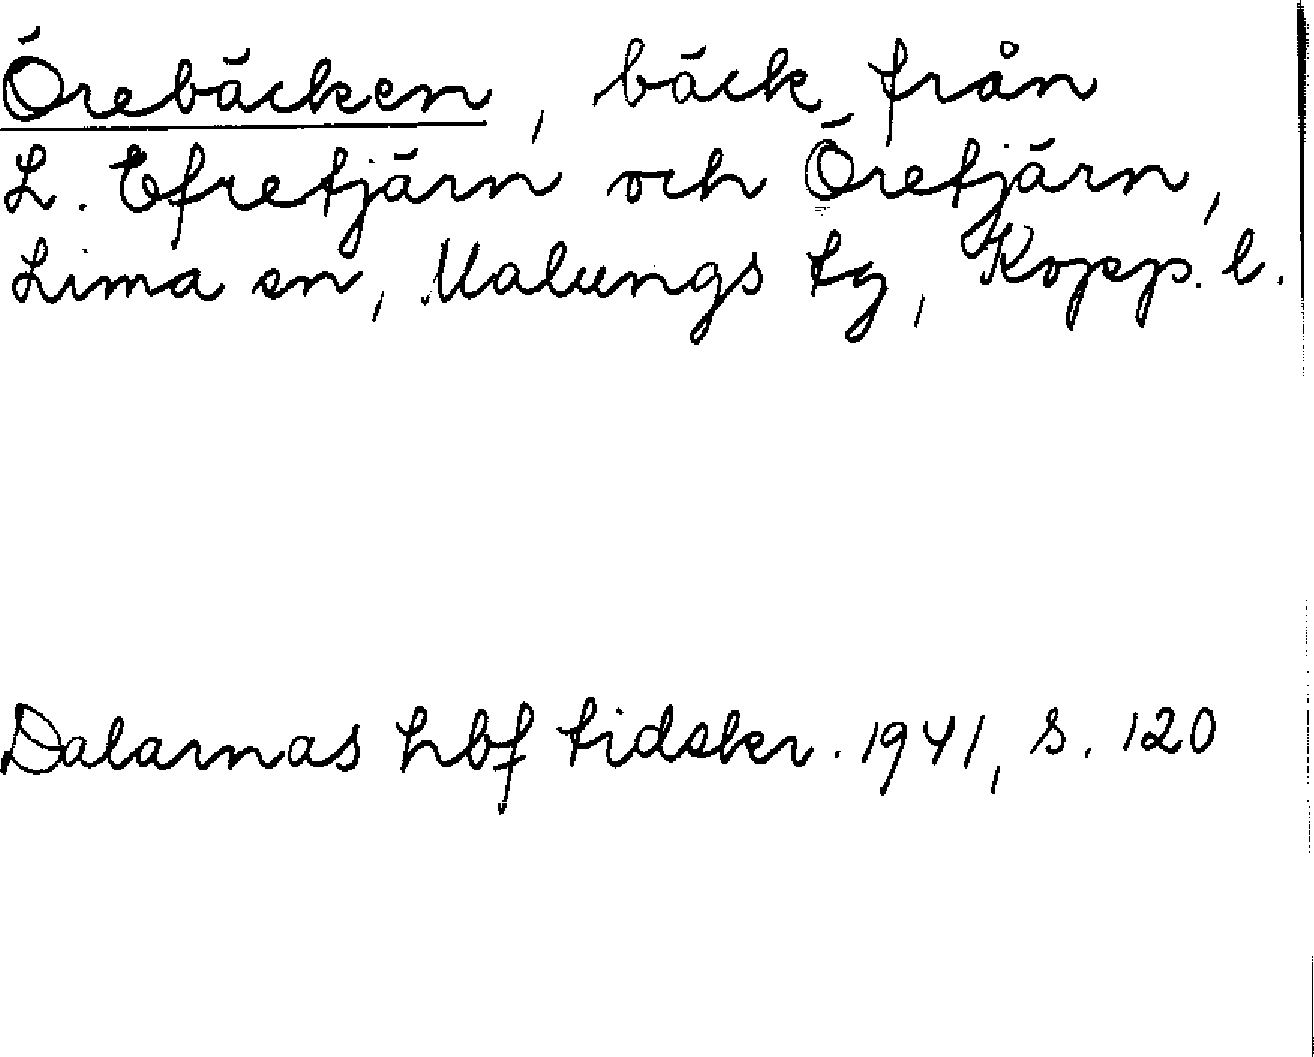 Örebäcken, bäck från
L. Efretjärn och Öretjärn,
Lima sn, Malungs tg, Kopp. l.
Dalarnas hbf tidskr. 1941, s. 120